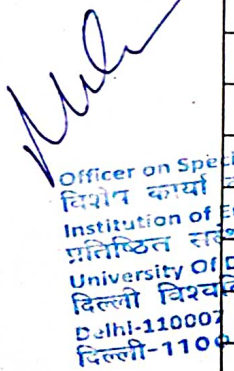 Officer on Speci
विशेष कार्या
Institution of E
प्रतिष्ठित संस्थ
University Of D
दिल्ली विश्ववि
Delhi-110007
दिल्ली-1100